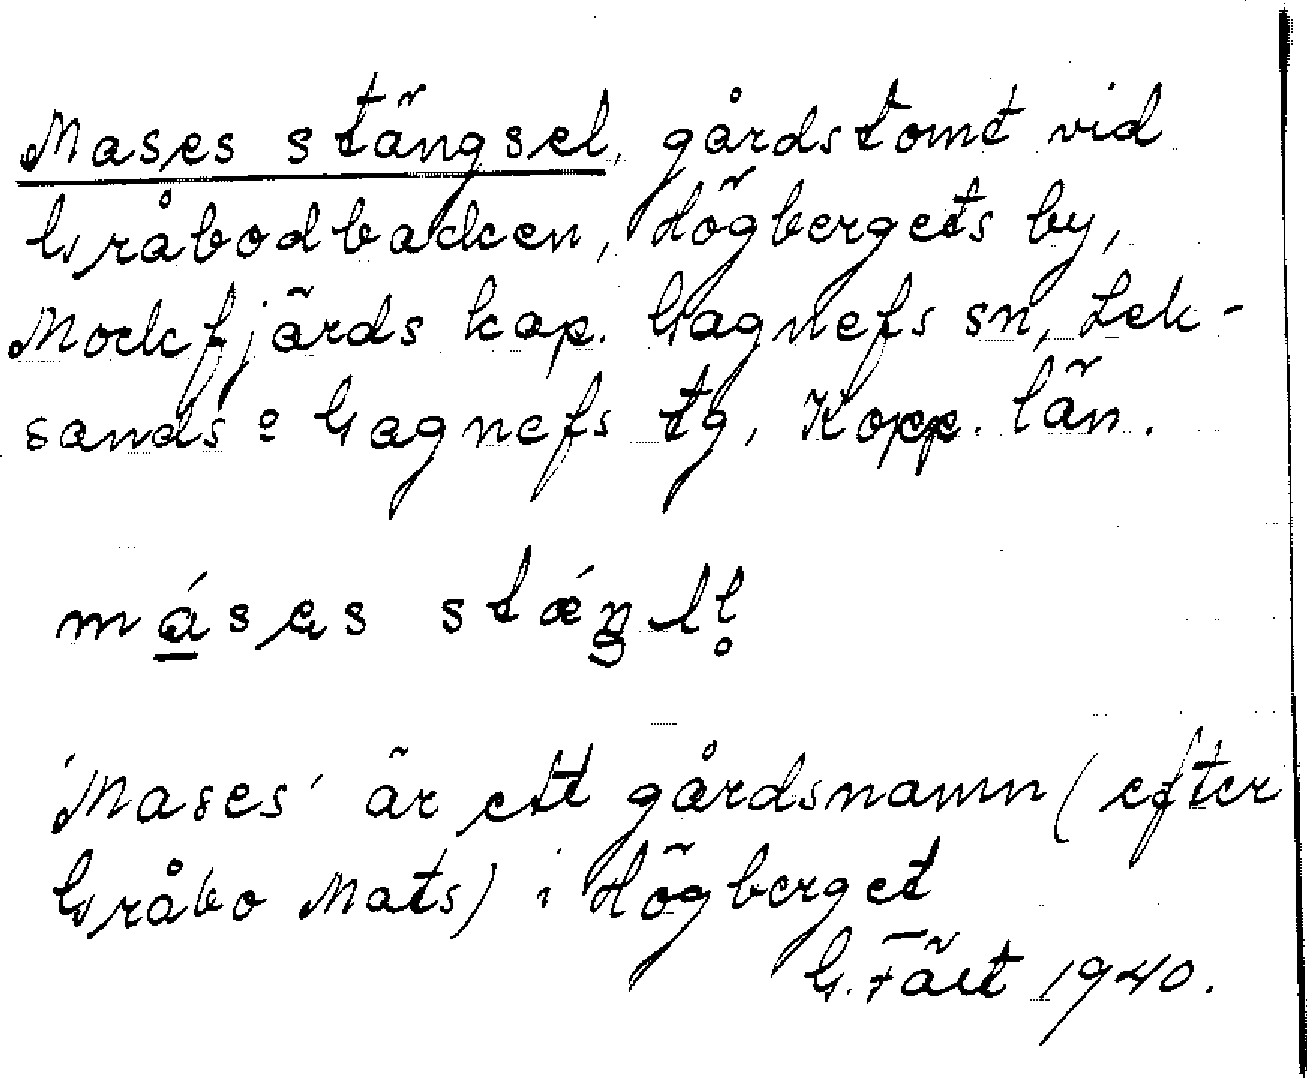 Mases stängsel, gårdstomt vid
Gråbodbacken, Högbergets by,
Mockfjärds kap. Gagnefs sn, Lek-
sands o Gagnefs tg, Kopp. län.
'Mases' är ett gårdsnamn (efter
Gråbo Mats) i Högberget
G. 1940.